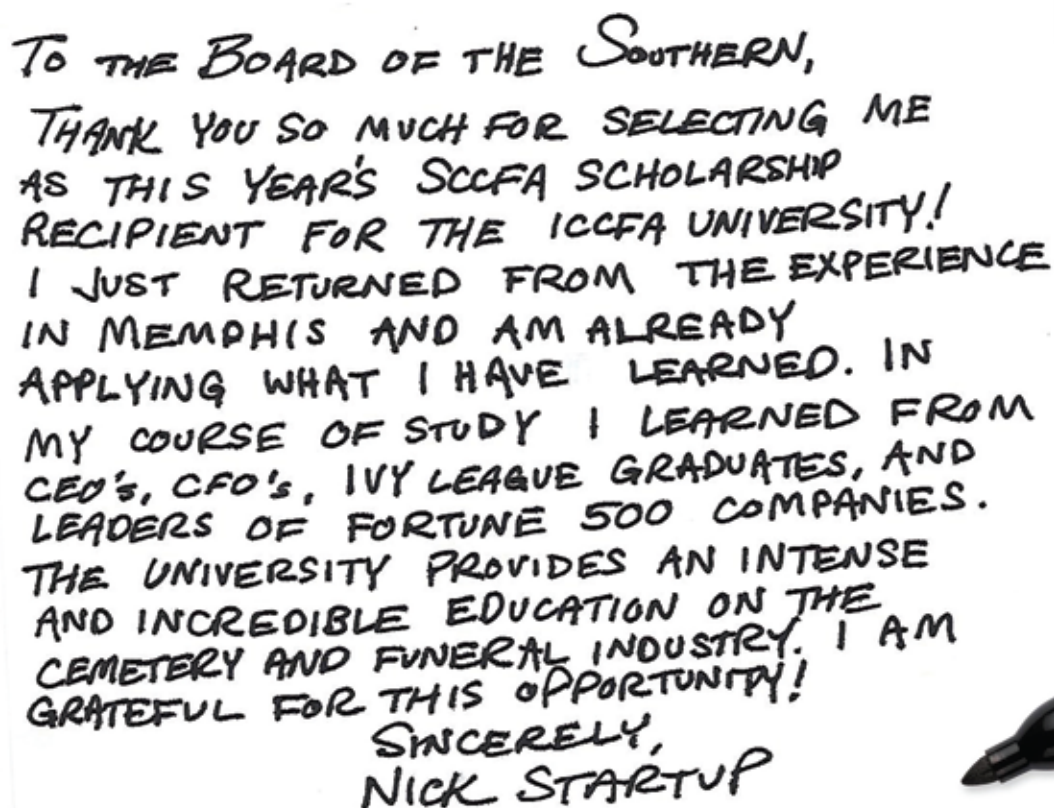 To THE BOARD OF THE SOUTHERN,
THANK YOU SO MUCH FOR SELECTING ME
AS THIS YEAR'S SCCFA SCHOLARSHIP
RECIPIENT FOR THE ICCFA UNIVERSITY!
I JUST RETURNED FROM THE EXPERIENCE
IN MEMPHIS AND AM ALREADY
APPLYING WHAT I HAVE LEARNED. IN
MY COURSE OF STUDY I LEARNED FROM
CEO's, CFO's, IVY LEAGUE GRADUATES, AND
LEADERS OF FORTUNE 500 COMPANIES.
THE UNIVERSITY PROVIDES AN INTENSE
AND INCREDIBLE EDUCATION ON THE
CEMETERY AND FUNERAL INDUSTRY. I AM
GRATEFUL FOR THIS OPPORTUNITY!
SINCERELY,
NICK STARTUP